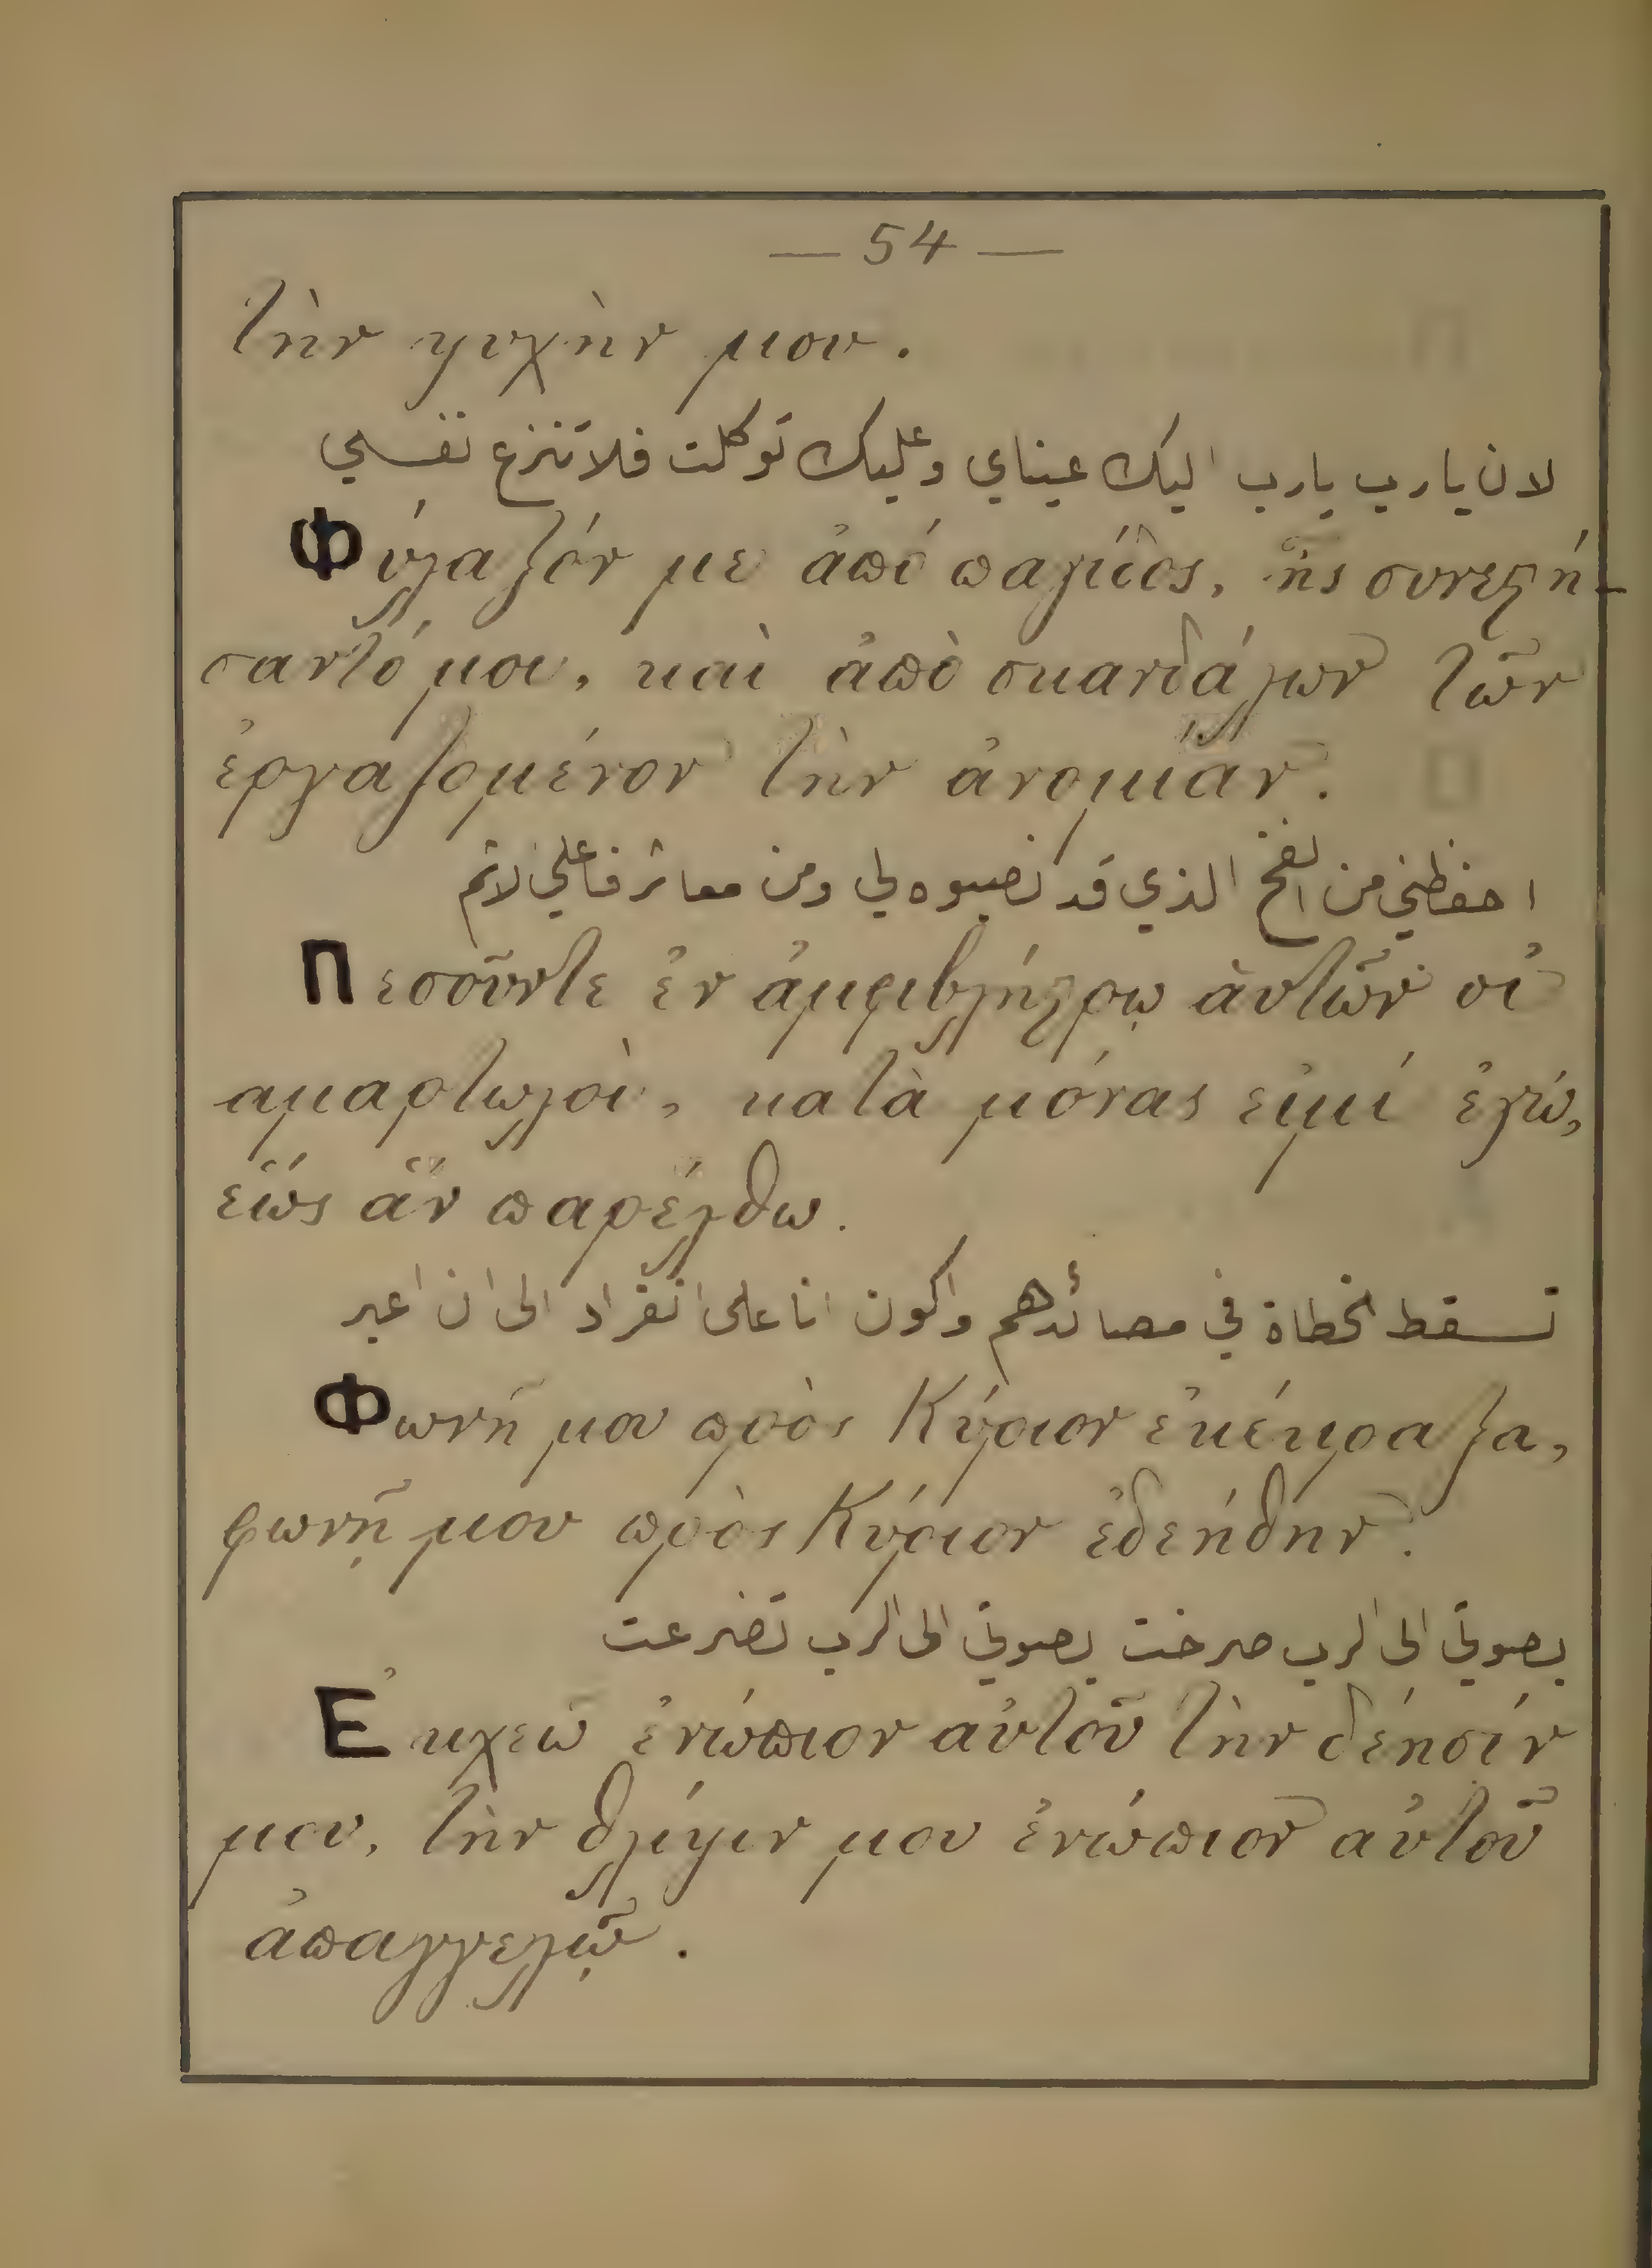 — 54 —
τὴν ψυχὴν μου.
لان يارب يارب اليك عيناي وعليك توكلت فلا تنزع نفسي
Φύλαξόν με ἀπό παγίδος, ἧς συνεστή-
σαντό μοι, καὶ ἀπὸ σκανδάλων τῶν
ἐργαζομένον τὴν ἀνομίαν.
احفظني من الفخ الذي قد نصبوه لي ومن معاثر فاعلي الاثم
Πεσοῦντε ἐν ἀμφιβλήστρῳ ἀυτῶν οἱ
αμαρτωλοὶ, κατὰ μόνας εἰμί ἐγώ,
εὥς ἂν παρέλθω.
تسقط الخطاة في مصائدهم واكون انا على انفراد الى ان اعبر
Φωνῆ μου πρὸς Κύριον ἐκέκραξα,
φωνῇ μου πρὸς Κύριον ἐδεήθην.
بصوتي الى الرب صرخت بصوتي الى الرب تضرعت
Ἐκχεῶ ἐνώπιον αὐτοῦ τὴν δέησίν
μου, τὴν θλίψιν μου ἐνώπιον αὐτοῦ
ἀπαγγελῷ.